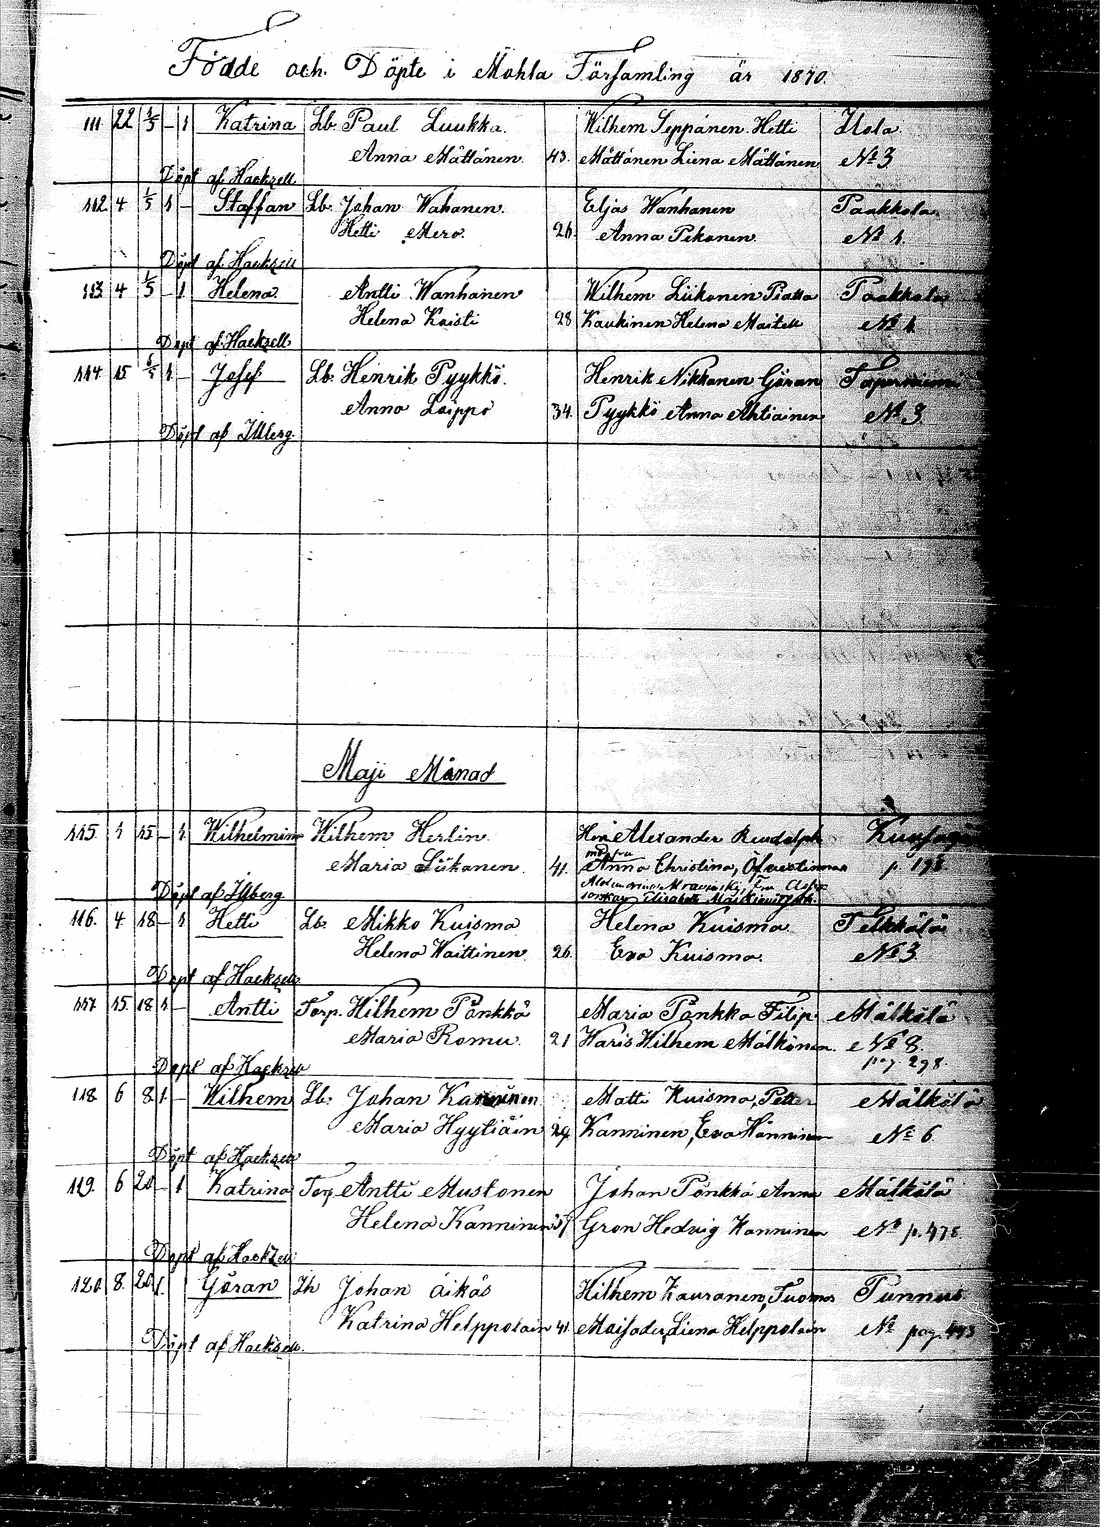 Födde och Döpte i Mohla Församling år 1870.
111 22 1/5 - 1 Katrina Lb. Paul Luukka. Wilhem Seppänen Hetti
Anna Mättänen. 43. Mättänen Liena Mättänen No 3
Döpt af Hackzell
112 4 1/5 1 - Staffan Lb. Johan Wahanen. Eljas Wanhanen Paakkola
Hetti Mero. 26. Anna Pekonen. No 1.
Döpt af Hackzell
113 4 1/5 - 1 Helena. Antti Wanhanen Wilhem Liikonen Paakkola
Helena Kaisti 28 Kaukinen Helena No 1.
Döpt af Hackzell
114. 15. 1 - Josef Lb. Henrik Pyykkö. Henrik Nikkanen Göran
Anna Loippo 34. Pyykkö Anna Ahtiainen No 3
Döpt af Illberg.
Maji Månad
115. 1 15 - 1 Wilhelmina Wilhem Herlin. Alexander Rendolph
Maria Liikanen. 41. Anna Christina, p. 198
Döpt af Illberg
116. 4 18 - 1 Hetti Lb. Mikko Kuisma Helena Kuisma Telkkälä
Helena Waittinen. 26. Eva Kuisma. No 3
Döpt af Hackzell
117 15. 18 1 - Antti Torp. Wilhem Pönkkä Maria Pönkkä Filip Mälkölä
Maria Romu. 21 Haris Wilhem Mälkönen. No 8.
pag. 298.
Döpt af Hackzell
118 6 8 1 - Wilhem Lb. Johan Kanninen Matti Kuisma, Petter Mälkölä
Maria Hyytiäin 29 Kanninen, Eva Hänninen No 6.
Döpt af Hackzell
119. 6 20 - 1 Katrina Torp Antti Mustonen Johan Pönkkä Anna Mälkölä
Helena Kanninen Gron Hedvig Kanninen No p. 478
Döpt af Hackzell
120. 8. 20 1. Göran Ih Johan Äikäs Wilhem Kauranen, Tuomas Punnus
Katrina Helppolain 41. Liena Helppolain No pag. 493
Döpt af Hackzell